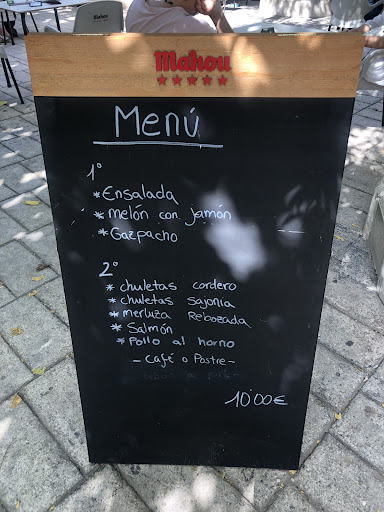 Mahou
Menú
1º
*Ensalada
*melón con jamón
*Gazpacho
2º
*chuletas cordero
*chuletas Sajonia
*merluza Rebozada
*Salmón
*Pollo al horno
-Café o Postre-
10'00€